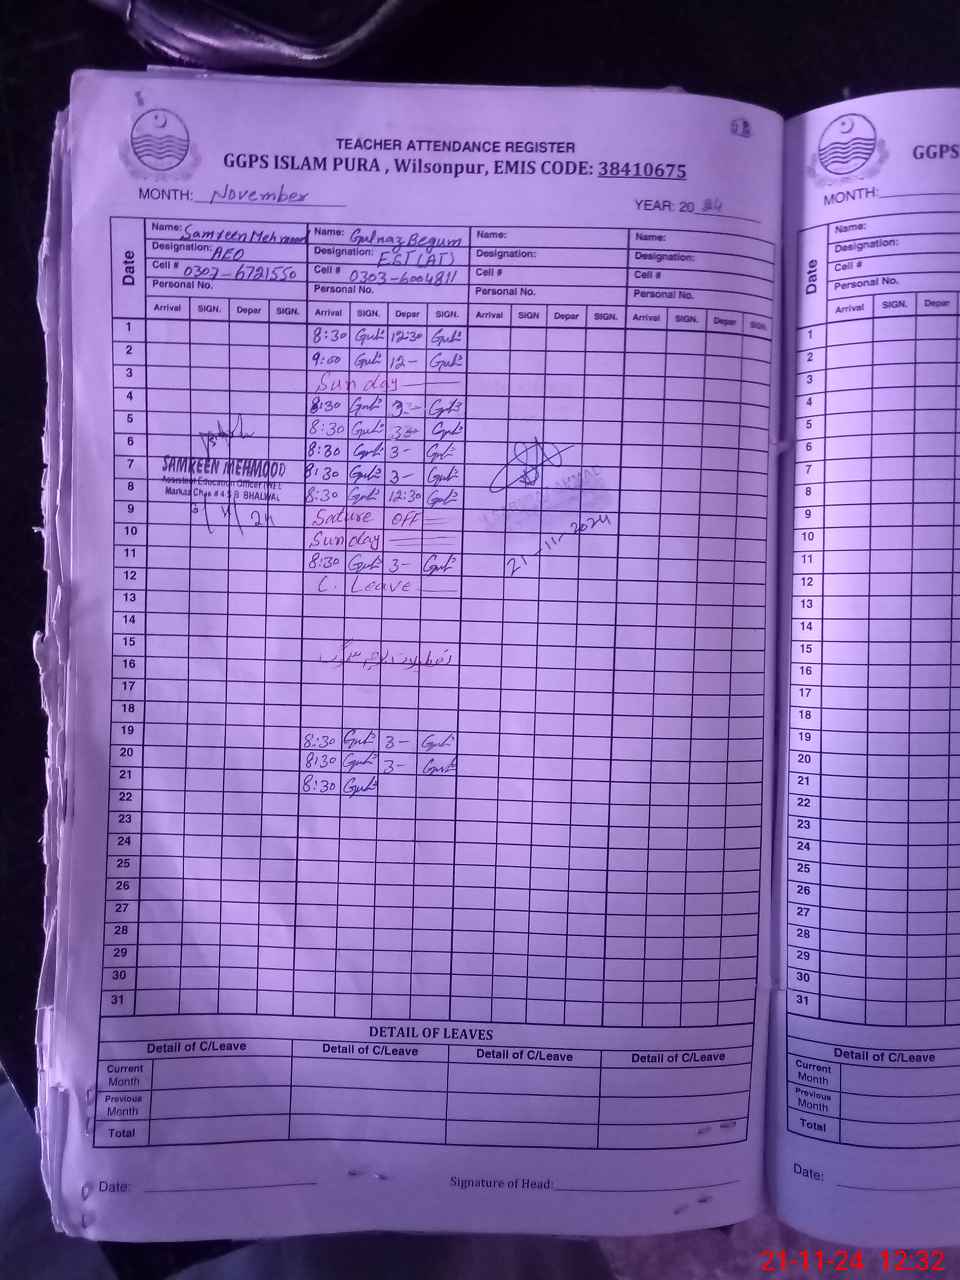 TEACHER ATTENDANCE REGISTER
GGPS ISLAM PURA , Wilsonpur, EMIS CODE: 38410675
MONTH: November
YEAR: 20 24
Date
Name: Samreen Mehmood Name: Gulnaz Begum Name: Name:
Designation: AEO Designation: EST (AT) Designation: Designation:
Cell # 0307-6721550 Cell # 0303-6004811 Cell # Cell #
Personal No. Personal No. Personal No. Personal No.
Arrival SIGN. Depar SIGN. Arrival SIGN. Depar SIGN. Arrival SIGN Depar SIGN. Arrival SIGN. Depar SIGN.
1 8:30 12:30
2 9:00 12-
3 Sunday
4 8:30 3-
5 8:30
6 8:30 3-
7 8:30 3-
8 8:30 12:30
9 OFF
10 Sunday
11 8:30 3-
12 C. Leave
13
14
15
16
17
18
19 8:30 3-
20 8:30 3-
21 8:30
22
23
24
25
26
27
28
29
30
31
SAMREEN MEHMOOD
Assistant Education Officer
Markaz BHALWAL
21-11-2024
DETAIL OF LEAVES
Detail of C/Leave Detail of C/Leave Detail of C/Leave Detail of C/Leave
Current Month
Previous Month
Total
Date:
Signature of Head:
GGPS
MONTH:
Date
Name:
Designation:
Cell #
Personal No.
Arrival SIGN. Depar
1
2
3
4
5
6
7
8
9
10
11
12
13
14
15
16
17
18
19
20
21
22
23
24
25
26
27
28
29
30
31
Detail of C/Leave
Current Month
Previous Month
Total
Date:
21-11-24 12:32